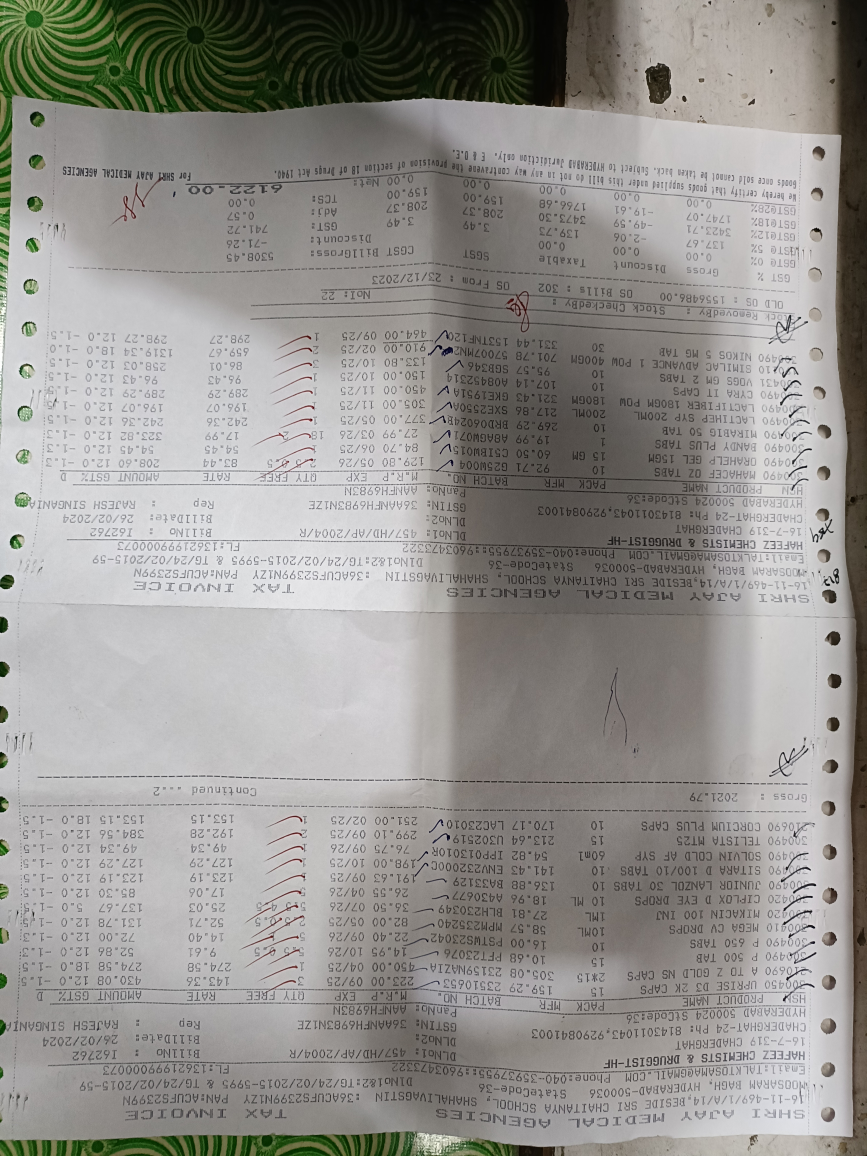 SHRI AJAY MEDICAL AGENCIES TAX INVOICE
16-11-469/1/A/14,BESIDE SRI CHAITANYA SCHOOL, SHAHALIVAGSTIN :36ACUFS2399N1ZY PAN:ACUFS2399N
MOOSARAM BAGH, HYDERABAD-500036 StateCode-36 DlNo1&2:TG/24/02/2015-5995 & TG/24/02/2015-59
Email:TALKTOSAMA@GMAIL.COM Phone:040-35937955::9603473322 FL:13621999000073
HAFEEZ CHEMISTS & DRUGGIST-HF DLNo1: 457/HD/AP/2004/R BillNo : I62762
16-7-319 CHADERGHAT DLNo2: BillDate: 26/02/2024
CHADERGHAT-24 Ph: 8143011043,9290841003 GSTIN: 36AANFHA6983N1ZE Rep : RAJESH SINGANIA
HYDERABAD 500024 StCode:36 PanNo: AANFH6983N
HSN PRODUCT NAME PACK MFR BATCH NO. M.R.P. EXP QTY FREE RATE AMOUNT GST% D
300450 UPRISE D3 2K CAPS 15 159.29 23510653 223.00 09/25 3 143.36 430.08 12.0 -1.5
210690 A TO Z GOLD NS CAPS 2*15 305.08 23I59NAZIA 450.00 04/25 1 274.58 274.58 18.0 -1.5
300490 P 500 TAB 10 10.68 PFTZ3076 14.95 10/26 5.5 0.5 9.61 52.86 12.0 -1.3
300490 P 650 TABS 10 16.00 PSTMS23042 22.40 09/26 5 14.40 72.00 12.0 -1.3
300410 MEGA CV DROPS 10ML 58.57 MPMZ35240 82.00 05/25 2.5 0.5 52.71 131.78 12.0
300420 MIKACIN 100 INJ 1ML 27.81 BLHZ30349 36.50 07/26 5.5 4.5 25.03 137.67 5.0 -1.5
300420 CIPLOX D EYE DROPS 10 ML 18.96 A430677 26.55 04/26 5 17.06 85.30 12.0 -1.5
300490 JUNIOR LANZOL 30 TABS 10 136.88 BA33129 191.63 09/25 1 123.19 123.19 12.0 -1.5
300490 SITARA D 100/10 TABS 10 141.43 ENV232000C 198.00 10/25 1 127.29 127.29 12.0 -1.5
300490 SOLVIN COLD AF SYP 60ml 54.82 IPP013010R 76.75 09/26 1 49.34 49.34 12.0 -1.5
300490 TELISTA MT25 15 213.64 U302519 299.10 09/25 2 192.28 384.56 12.0 -1.5
210690 CORCIUM PLUS CAPS 10 170.17 LAC23010 251.00 02/25 1 153.15 153.15 18.0 -1.5
Gross : 2021.79 Continued ...2
SHRI AJAY MEDICAL AGENCIES TAX INVOICE
16-11-469/1/A/14,BESIDE SRI CHAITANYA SCHOOL, SHAHALIVAGSTIN :36ACUFS2399N1ZY PAN:ACUFS2399N
MOOSARAM BAGH, HYDERABAD-500036 StateCode-36 DlNo1&2:TG/24/02/2015-5995 & TG/24/02/2015-59
Email:TALKTOSAMA@GMAIL.COM Phone:040-35937955::9603473322 FL:13621999000073
HAFEEZ CHEMISTS & DRUGGIST-HF DLNo1: 457/HD/AP/2004/R BillNo : I62762
16-7-319 CHADERGHAT DLNo2: BillDate: 26/02/2024
CHADERGHAT-24 Ph: 8143011043,9290841003 GSTIN: 36AANFH6983N1ZE Rep : RAJESH SINGANIA
HYDERABAD 500024 StCode:36 PanNo: AANFH6983N
HSN PRODUCT NAME PACK MFR BATCH NO. M.R.P. EXP QTY FREE RATE AMOUNT GST% D
300490 MAHACEF OZ TABS 10 92.71 G25MO024 129.80 05/26 2.5 0.5 83.44 208.60 12.0 -1.3
300490 ORAHELP GEL 15GM 15 GM 60.50 CI5IBM0158 84.70 06/25 1 54.45 54.45 12.0 -1.3
300490 BANDY PLUS TABS 1 19.99 ABAGN071 27.99 03/26 18 2 17.99 323.82 12.0 -1.3
300490 MIRABIG 50 TAB 10 269.29 BRD60424B 377.00 05/25 1 242.36 242.36 12.0 -1.5
300490 LACTIHEP SYP 200ML 200ML 217.86 SXE2550A 305.00 11/25 1 196.07 196.07 12.0 -1.5
300490 LACTIFIBER 180GM POW 180GM 321.43 GKE1951A 450.00 11/25 1 289.29 289.29 12.0 -1.5
300490 CYRA IT CAPS 10 107.14 A0845Z314 150.00 10/25 1 96.43 96.43 12.0 -1.5
300431 VOGS GM 2 TABS 10 95.57 SGB346 133.80 10/25 3 86.01 258.03 12.0 -1.5
190110 SIMILAC ADVANCE 1 POW 400GM 701.78 57007MN2 910.00 02/25 2 659.67 1319.34 18.0 -1.0
300490 NIKOS 5 MG TAB 30 331.44 153TNF120 464.00 09/25 1 298.27 298.27 12.0 -1.5
Stock RemovedBy : Stock CheckedBy :
OLD OS : 1556486.00 OS Bills : 302 OS From : 23/12/2023 NoI: 22
GST % Gross Discount Taxable SGST CGST BillGross: 5308.45
GST@ 0% 0.00 0.00 0.00 Discount: -71.26
GST@ 5% 137.67 -2.06 139.73 3.49 3.49 GST: 741.72
GST@12% 3423.71 -49.59 3473.30 208.37 208.37 Adj: 0.57
GST@18% 1747.07 -19.61 1766.68 159.00 159.00 TCS: 0.00
GST@28% 0.00 0.00 0.00 0.00 0.00 Net: 6122.00
We hereby certify that goods supplied under this bill do not in any way contravene the provision of section 18 of Drugs Act 1940.
Goods once sold cannot be taken back. Subject to HYDERABAD Juridiction only. E & O.E For SHRI AJAY MEDICAL AGENCIES